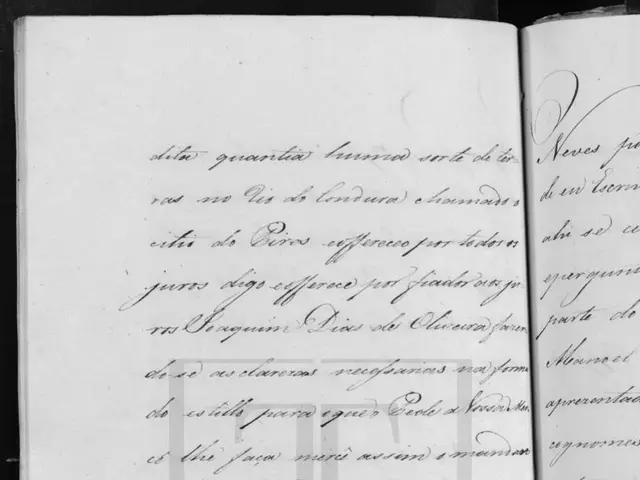 dita quantia huma sorte de ter-
ras no Rio do Condura chamado o
citio do Piros eoffereceo por todos os
juros digo eofferece por fiador aos ju
ros Joaquim Dias de Oliveira fazen
do se as clarezas necessarias na forma
do estillo para e que o Pede a Vossa Mer
cê lhê faça mercê assim o mandar
Neves po
de eu Escri
ahi se
epergun
parte do
Manoel
aprezentad
cognomes